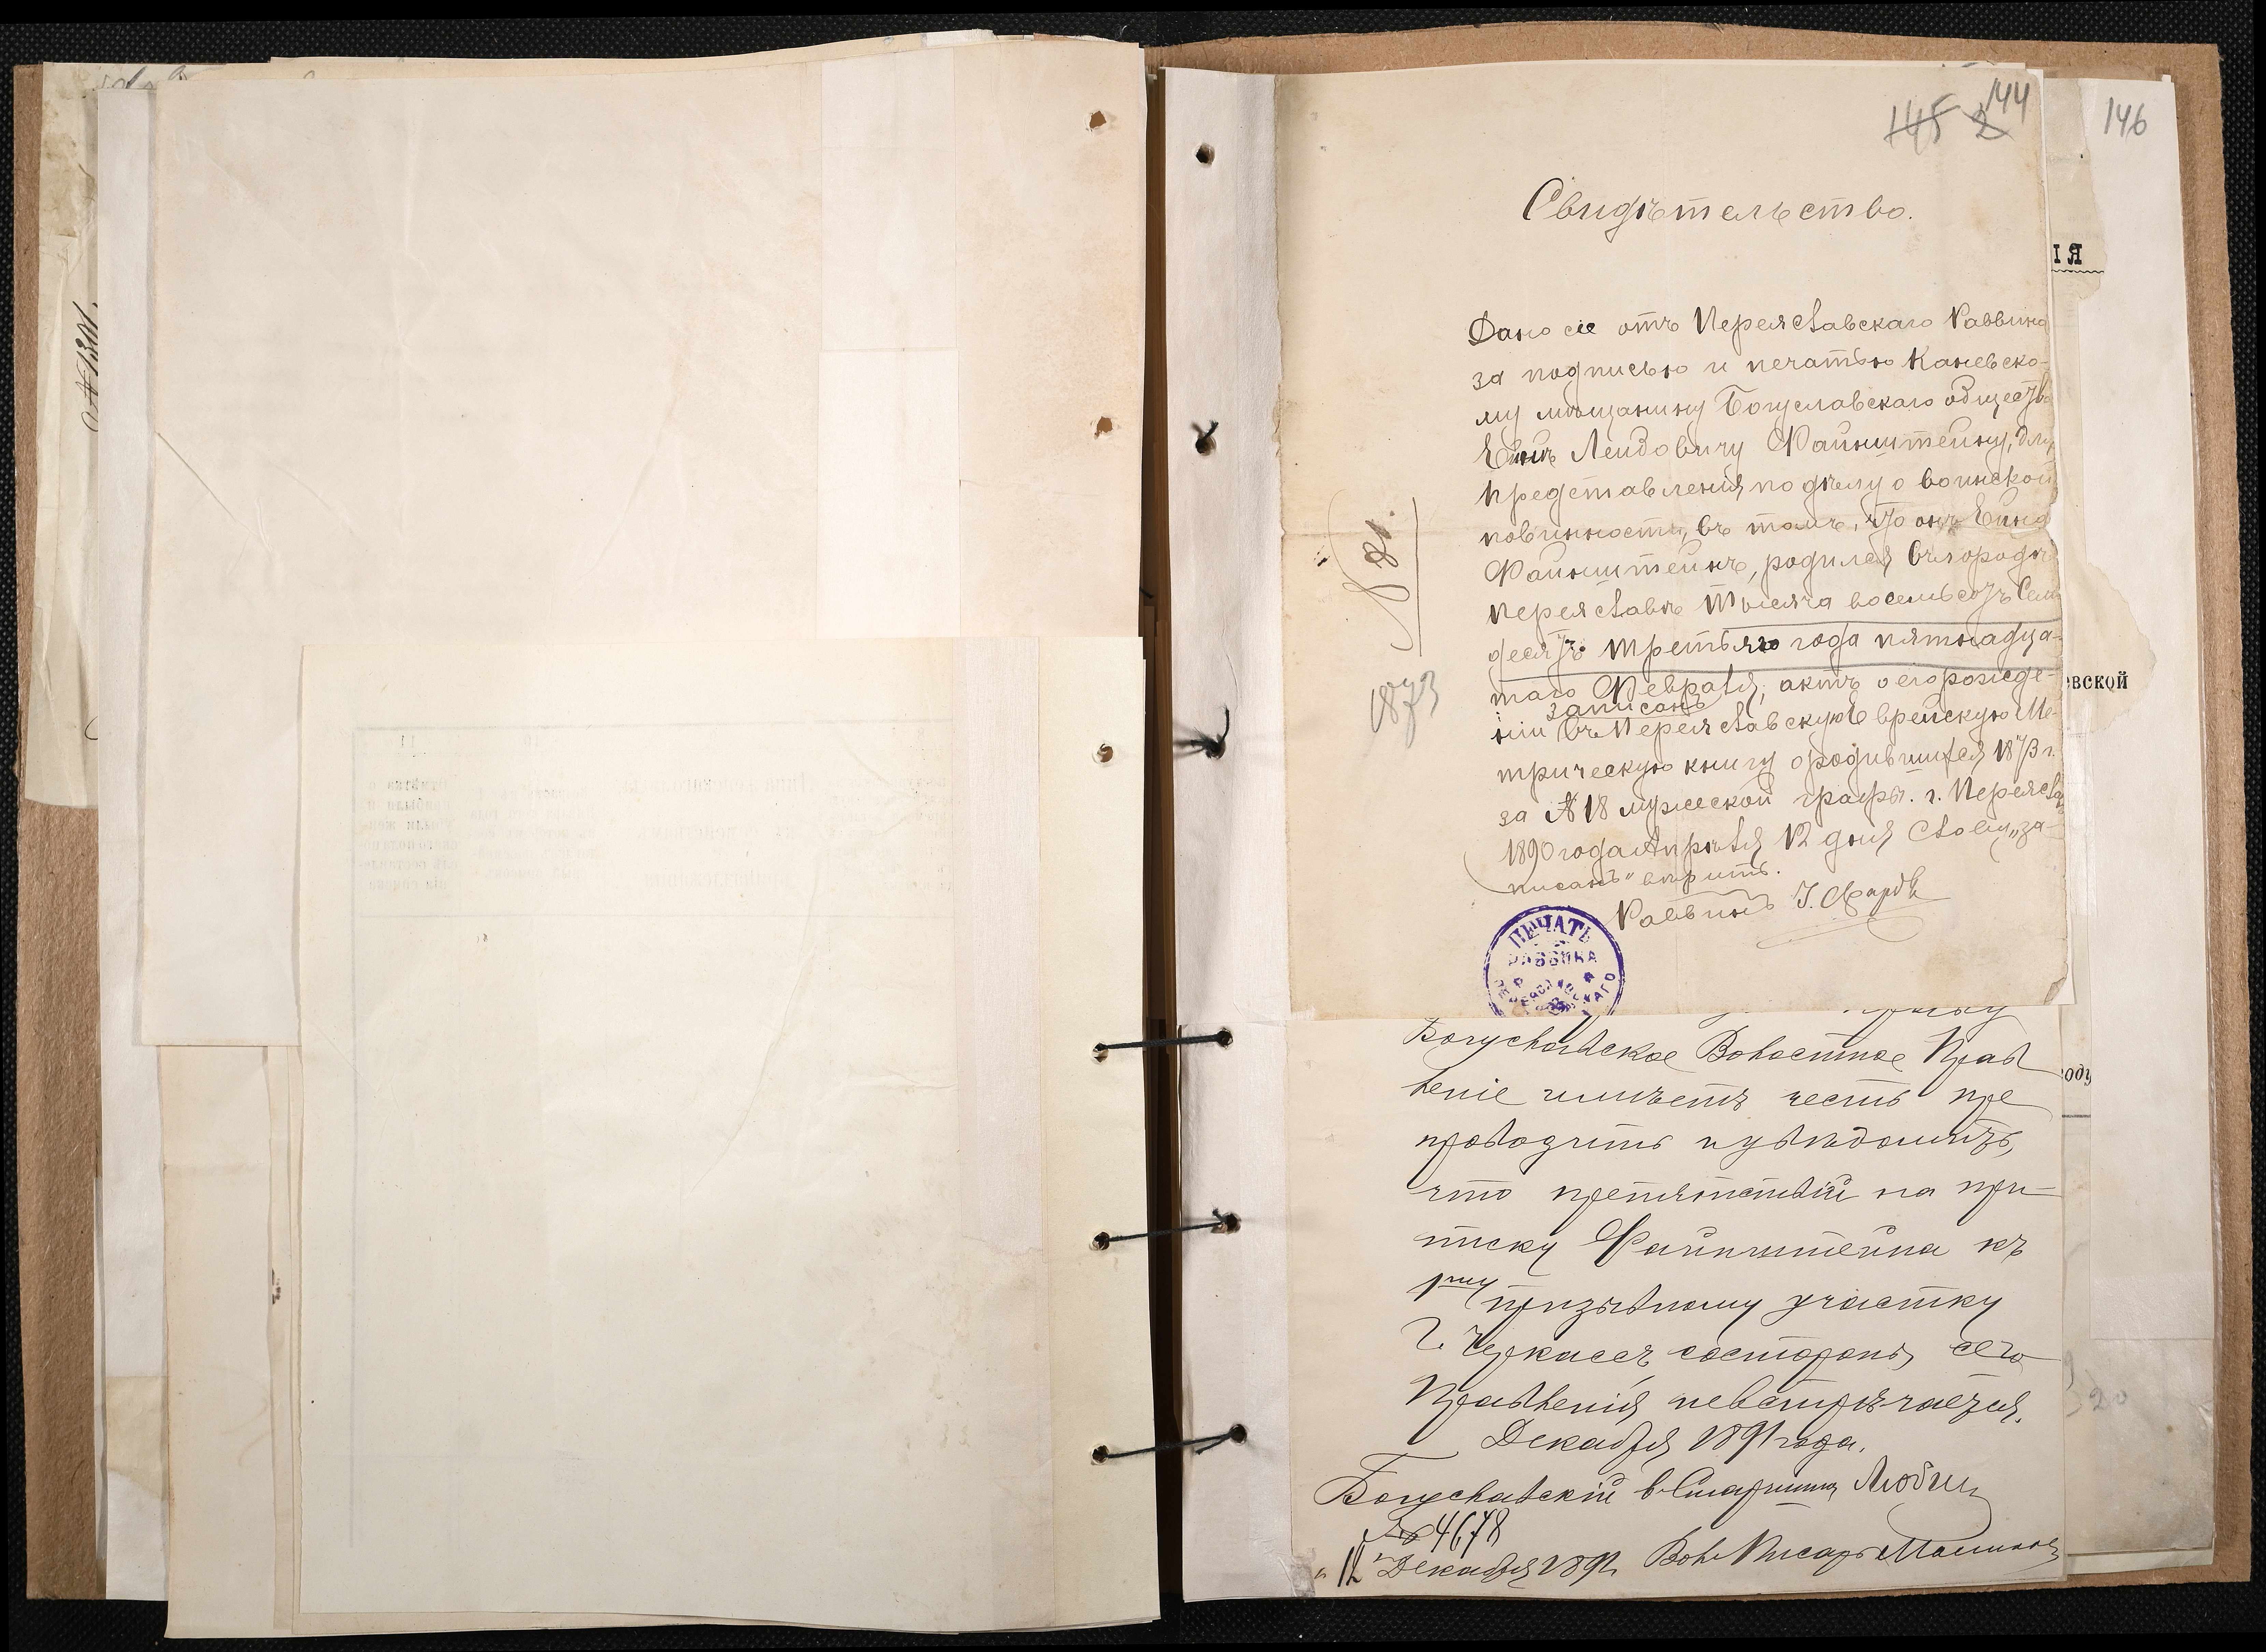 145 2 144
146
Свидѣтельство.
Дано сіе отъ Переяславскаго Раввина
за подписью и печатью Каневско-
му мѣщанину Богуславскаго общества
Лейбовичу Файнштейну, для
представленія по дѣлу о воинской
повинности, въ томъ, что онъ
Файнштейнъ, родился въ городѣ
Переяславѣ тысяча восемьсотъ Семь
десятъ третьяго года пятнадца-
таго Февраля, актъ о его рожде-
записанъ
ніи въ Переяславскую Еврейскую Ме-
трическую книгу о родившихся 1873 г.
за № 18 мужеской графы. г. Переяславъ
1890 года Апрѣля 12 дня Слову „за-
писанъ" вѣрить.
Раввинъ
№ 81.
1873
ПЕЧАТЬ
РАВВИНА
Богуславское Волостное Прав
леніе имѣетъ честь пре
проводить и увѣдомить,
что препятствій на при-
писку Файнштейна къ
1му призывному участку
г. Черкассъ со стороны сего
Правленія не встрѣчается.
Декабря 1891 года.
Богуславскій в. Старшина
№ 4678
„12" Декабря 1891 Вол. Писарь
ІЯ
ЕВСКОЙ
оду
20